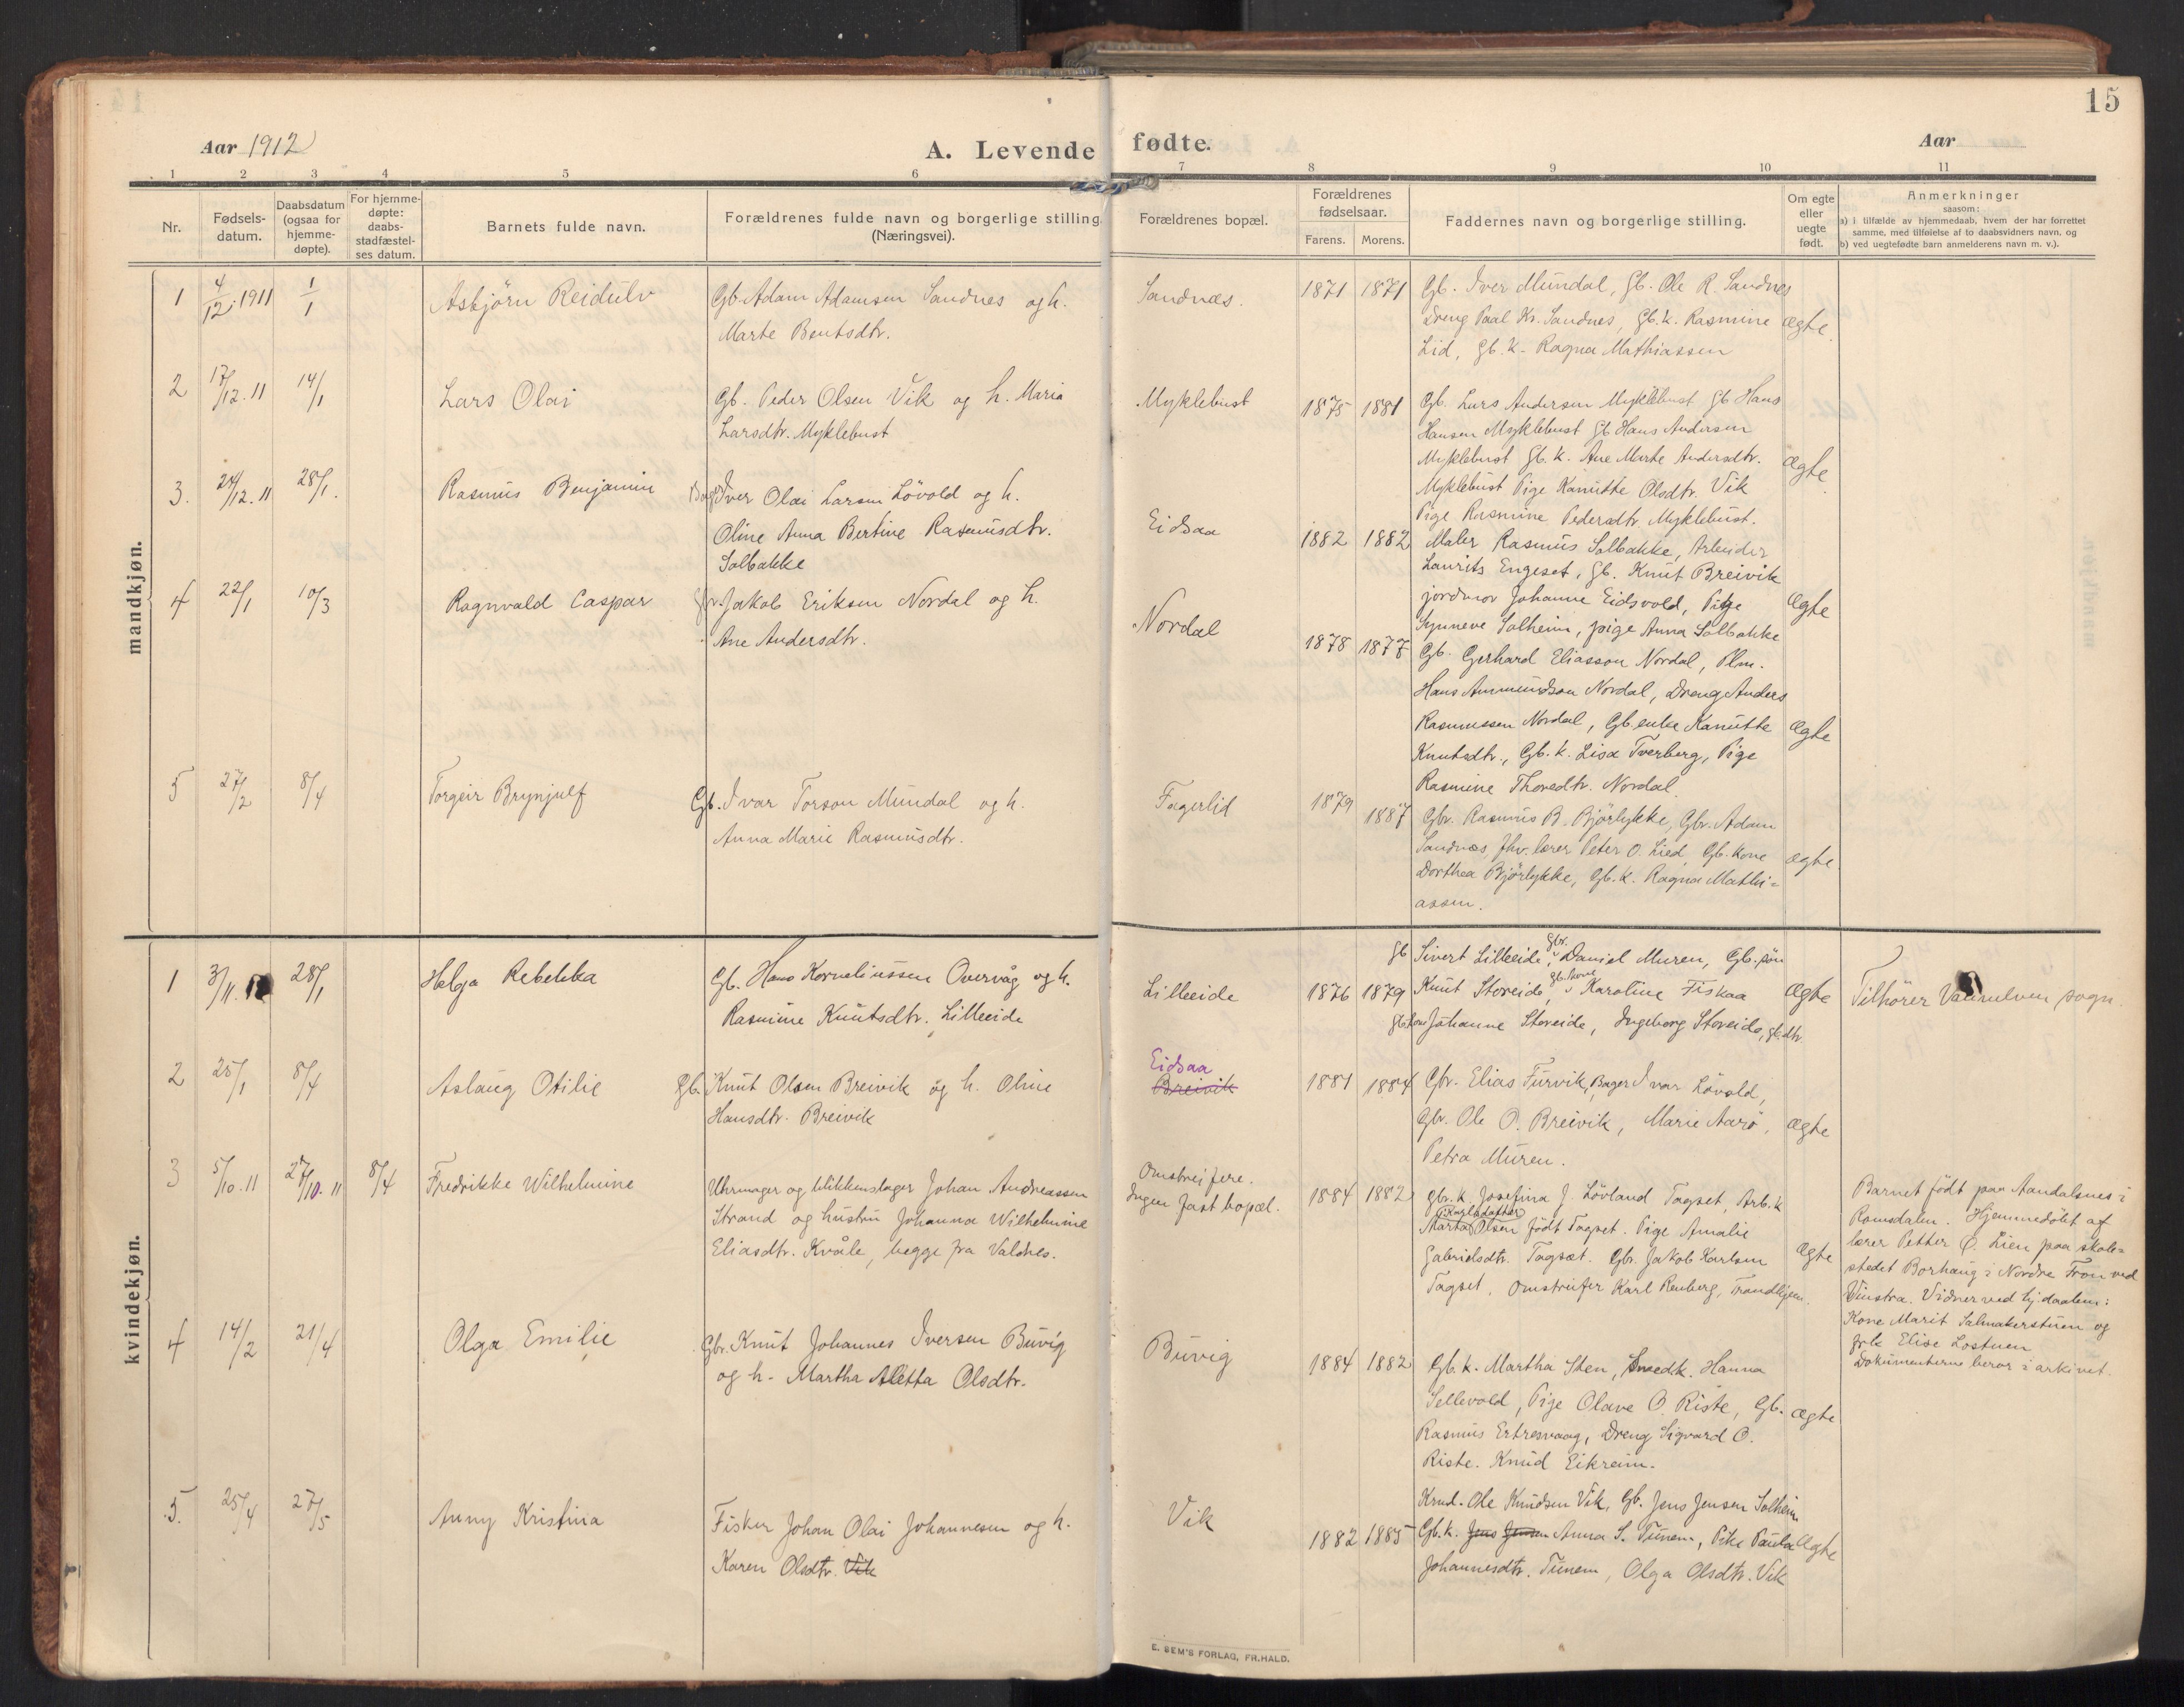 15
Aar 1912
A. Levende fødte.
Aar
1 2 3 4 5 6 7 8 9 10 11
Nr.
Fødsels-
datum.
Daabsdatum
(ogsaa for
hjemme-
døpte).
For hjemme-
døpte:
daabs-
stadfæstel-
ses datum.
Barnets fulde navn.
Forældrenes fulde navn og borgerlige stilling
(Næringsvei).
Forældrenes bopæl.
Forældrenes
fødselsaar.
Farens. Morens.
Faddernes navn og borgerlige stilling.
Om egte
eller
uegte
født.
Anmerkninger
saasom:
a) i tilfælde av hjemmedaab, hvem der har forrettet
samme, med tilføielse af to daabsvidners navn, og
b) ved uegtefødte barn anmelderens navn m. v.).
mandkjøn.
1 4/12. 1911 1/1 Asbjörn Reidulv
Gb. Adam Adamsen Sandnes og h.
Marte Bentsdtr.
Sandnæs. 1871 1871
Gb. Iver Mundal, Gb. Ole R. Sandnes
Dreng Paal Kr. Sandnes, Gb. k. Rasmine
Lid, Gb. k. Ragna Mathiassen
Ægte.
2 17/12. 11 14/1 Lars Olai
Gb. Peder Olsen Vik og h. Maria
Larsdtr. Myklebust
Myklebust 1875 1881
Gb. Lars Andersen Myklebust Gb Hans
Hansen Myklebust Gb Hans Andersen
Myklebust Gb. k. Ane Marte Andersdtr.
Myklebust Pige Kanutte Olsdtr. Vik
Pige Rasmine Pedersdtr. Myklebust.
Ægte.
3. 24/12. 11 28/1. Rasmus Benjamin
Bager Iver Olai Larsen Lövold og h.
Oline Anna Bertine Rasmusdtr.
Solbakke
Eidsaa 1882 1882
Maler Rasmus Solbakke, Arbeider
Laurits Engeset, Gb. Knut Breivik
jordmor Johanne Eidsvold, Pige
Synneve Solheim, pige Anna Solbakke
Ægte
4 22/1 10/3 Ragnvald Caspar
Gbr. Jakob Eriksen Nordal og h.
Ane Andersdtr.
Nordal 1878 1877
Gb. Gerhard Eliasson Nordal, Plm.
Hans Ammundson Nordal, Dreng Anders
Rasmussen Nordal, Gb. enke Kanutte
Knutsdtr., Gb. k. Lisa Tverberg, Pige
Rasmine Thoredtr. Nordal.
Ægte
5 27/2 8/4 Torgeir Brynjulf
Gb. Ivar Torson Mundal og h.
Anna Marie Rasmusdtr.
Fagerlid 1879 1887
Gbr. Rasmus B. Björlykke, Gbr. Adam
Sandnæs, fhv. lærer Peter O. Lied, Gb. kone
Dorthea Björlykke, Gb. k. Ragna Mathi=
assen.
ægte.
kvindekjøn.
1 3/11. 28/1 Helga Rebekka
Gb. Hans Korneliussen Overvåg og h.
Rasmine Knutsdtr. Lilleeide
Lilleeide 1876 1879
Gb Sivert Lilleeide, Gbr. Daniel Muren, Gb. sön
Knut Storeide, Gb. kone Karoline Fiskaa
Gb. kone Johanne Storeide, Ingeborg Storeide, gb. dtr.
Ægte
Tilhörer Vannelven sogn.
2 25/1 8/4 Aslaug Otilie
Gb. Knut Olsen Breivik og h. Oline
Hansdtr. Breivik
Eidsaa
Breivik 1881 1884
Gbr. Elias Furvik, Bager Ivar Lövold,
Gbr. Ole O. Breivik, Marie Aarö,
Petra Muren.
ægte
3 5/10. 11 27/10. 11 8/4 Fredrikke Wilhelmine
Uhrmager og blikkenslager Johan Andreassen
Strand og hustru Johanna Wilhelmine
Eliasdtr. Kvåle, begge fra Valdres.
Omstreifere.
Ingen fast bopæl. 1884 1882
gbr. k. Josefina J. Lövland Tagset, Arb. k
Marta Karlsdatter Olsen født Tagset. Pige Amalie
Gabrielsdtr. Tagset. Gbr. Jakob Karlsen
Tagset, Omstreifer Karl Renberg, Trondhjem.
Ægte
Barnet født paa Aandalsnes i
Romsdalen. Hjemmedöbt af
lærer Petter Ö. Lien paa skole=
stedet Borhaug i Nordre Fron ved
Vinstra. Vidner ved hj.daaben:
Kone Marit Salmakerstuen og
frk Elise Lostuen
Dokumenterne beror i arkivet.
4 14/2 21/4 Olga Emilie
Gbr. Knut Johannes Iversen Buvig
og h. Martha Aletta Olsdtr.
Buvig 1884 1882
Gb. k. Martha Sten, Smedk. Hanna
Sellevold, Pige Olave O. Riste, Gb.
Rasmus Ertresvaag, Dreng Sigvard O.
Riste. Knud Eikrem.
ægte
5. 25/4 27/5 Anny Kristina
Fisker Johan Olai Johannesen og h.
Karen Olsdtr. Vik
Vik 1882 1885
Krud. Ole Knudsen Vik, Gb. Jens Jensen Solheim
Gb. k. Jens Jensen Anna S. Tunem, Pike Paula
Johannesdtr. Tunem, Olga Olsdtr. Vik
Ægte
E. SEM'S FORLAG, FR.HALD.